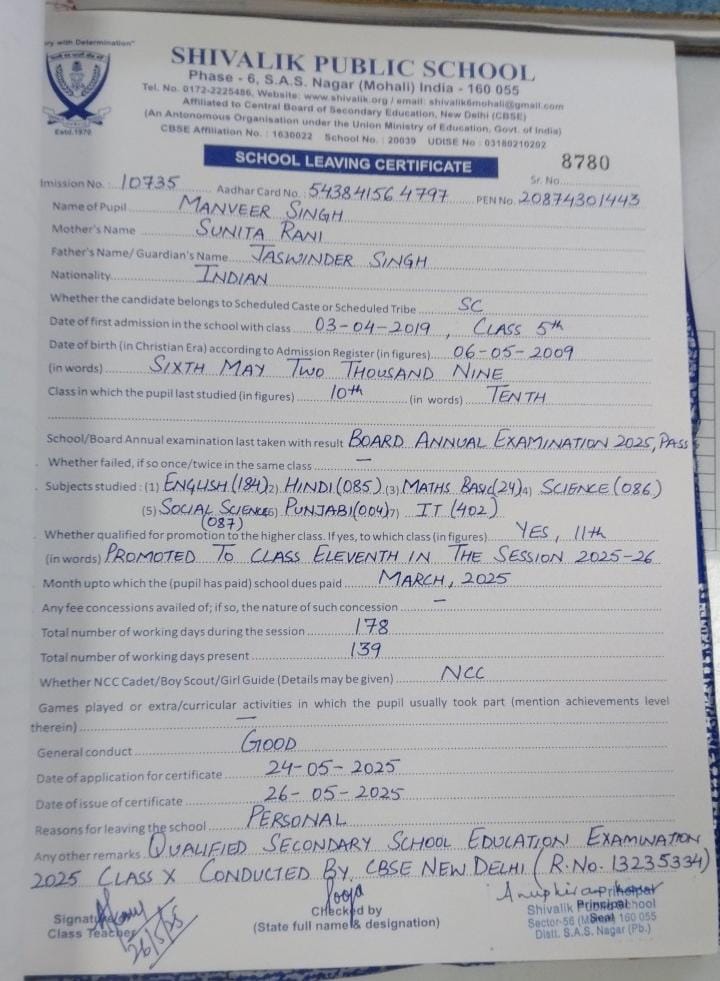 ry with Determination"
SHIVALIK PUBLIC SCHOOL
Phase - 6, S.A.S. Nagar (Mohali) India - 160 055
Tel. No. 0172-2225486, Website: www.shivalik.org / email: shivalik6mohali@gmail.com
Affiliated to Central Board of Secondary Education, New Delhi (CBSE)
(An Antonomous Organisation under the Union Ministry of Education, Govt. of India)
CBSE Affiliation No. : 1630022 School No. : 20039 UDISE No : 03180210202
Estd.1970
SCHOOL LEAVING CERTIFICATE
8780
Sr. No.
lmission No.: 10735 Aadhar Card No.: 543841564797 PEN No. 20874301443
Name of Pupil MANVEER SINGH
Mother's Name SUNITA RANI
Father's Name/ Guardian's Name JASWINDER SINGH
Nationality INDIAN
Whether the candidate belongs to Scheduled Caste or Scheduled Tribe SC
Date of first admission in the school with class 03-04-2019, CLASS 5th
Date of birth (in Christian Era) according to Admission Register (in figures) 06-05-2009
(in words) SIXTH MAY TWO THOUSAND NINE
Class in which the pupil last studied (in figures) 10th (in words) TENTH
School/Board Annual examination last taken with result BOARD ANNUAL EXAMINATION 2025, PASS
Whether failed, if so once/twice in the same class —
Subjects studied : (1) ENGLISH (184) 2) HINDI (085) (3) MATHS BASIC (24) 4) SCIENCE (086)
(5) SOCIAL SCIENCE 6) PUNJABI (004) 7) IT (402)
(087)
Whether qualified for promotion to the higher class. If yes, to which class (in figures) YES, 11th
(in words) PROMOTED TO CLASS ELEVENTH IN THE SESSION 2025-26
Month upto which the (pupil has paid) school dues paid MARCH, 2025
Any fee concessions availed of; if so, the nature of such concession —
Total number of working days during the session 178
Total number of working days present 139
Whether NCC Cadet/Boy Scout/Girl Guide (Details may be given) NCC
Games played or extra/curricular activities in which the pupil usually took part (mention achievements level
therein) —
General conduct GOOD
Date of application for certificate 24-05-2025
Date of issue of certificate 26-05-2025
Reasons for leaving the school PERSONAL
Any other remarks QUALIFIED SECONDARY SCHOOL EDUCATION EXAMINATION
2025 CLASS X CONDUCTED BY CBSE NEW DELHI (R.NO. 13235334)
Signature
Class Teacher
26/5/25
Pooja
Checked by
(State full name & designation)
Principal
Principal
Shivalik Public School
Seal
Sector-56 (M 160 055
Distt. S.A.S. Nagar (Pb.)